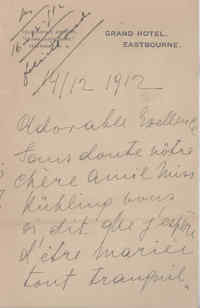 GRAND HOTEL,
EASTBOURNE.
14/12 1912
Adorable Exellence
Sans doute nôtre
chère amie Miss
Kühling vous
a dit que j'espère
d'être mariée
tout tranquil.